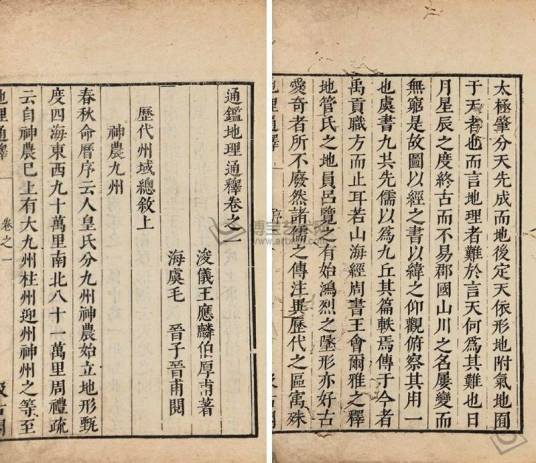 太極肇分天先成而地後定天依形地附氣地囿
于天者也而言地理者難於言天何爲其難也日
月星辰之度終古而不易郡國山川之名屢變而
無窮是故圖以經之書以緯之仰觀俯察其用一
也虞書九共先儒以爲九丘其篇軼焉傳于今者
禹貢職方而止耳若山海經周書王會爾雅之釋
地管氏之地員呂覽之有始鴻烈之墬形亦好古
愛奇者所不廢然諸儒之傳注異歷代之區寓殊
地理通釋 序
通鑑地理通釋卷之一
浚儀王應麟伯厚甫著
海虞毛 晉子晉甫閱
歷代州域總敘上
神農九州
春秋命曆序云人皇氏分九州神農始立地形甄
度四海東西九十萬里南北八十一萬里周禮疏
云自神農已上有大九州柱州迎州神州之等至
地理通釋 卷之一